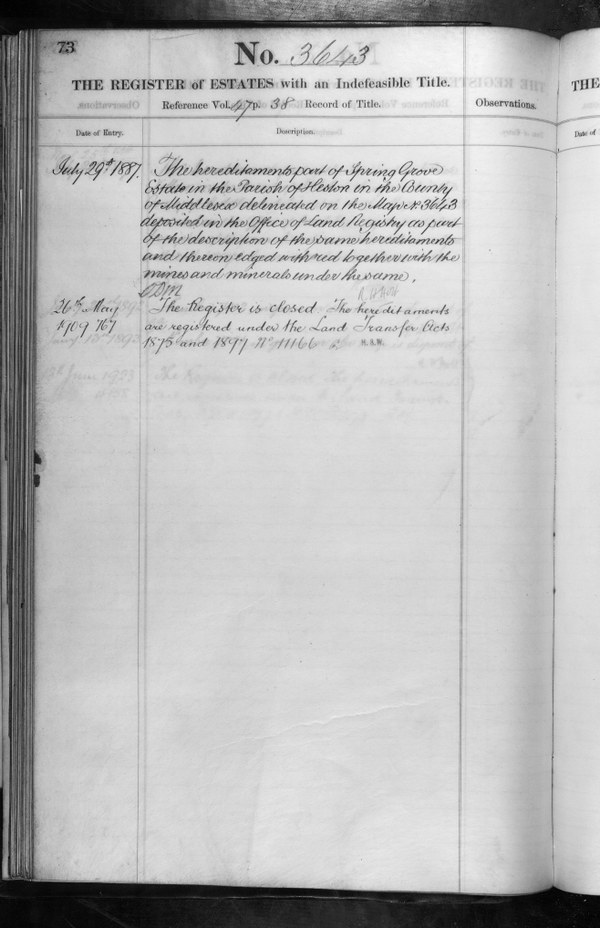 73
No. 3643
THE REGISTER of ESTATES with an Indefeasible Title.
Reference Vol. 47 p. 38 Record of Title.
Observations.
Date of Entry.
Description.
July 29th 1887.
The hereditaments part of Spring Grove
Estate in the Parish of Heston in the County
of Middlesex delineated on the Map No 3643
deposited in the Office of Land Registry as part
of the description of the same hereditaments
and thereon edged with red together with the
mines and minerals under the same.
26th May
1909 767
The Register is closed The hereditaments
are registered under the Land Transfer Acts
1875 and 1897 No 11166
THE
Date of